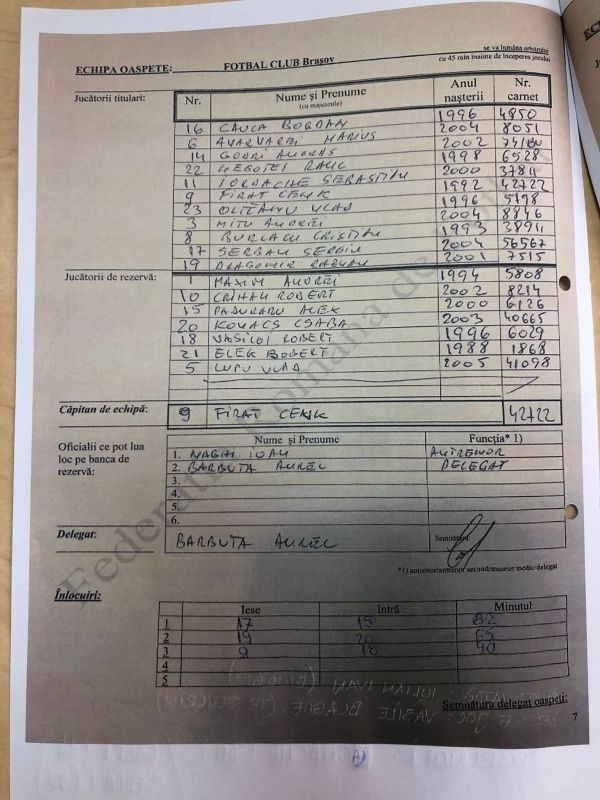 se va înmâna arbitrului
ECHIPA OASPETE: FOTBAL CLUB Brașov cu 45 min înainte de începerea jocului
Jucătorii titulari: Nr. Nume și Prenume (cu majuscule) Anul nașterii Nr. carnet
16 CAUCA BOGDAN 1996 4850
6 AVARVAREI MARIUS 2004 8051
14 ANDRAS 2002
22 RAUL 1998 6528
11 IORDACHE SEBASTIAN 2000 37811
9 FIRAT CENK 1992 42722
23 OLTEANU VLAD 1996 5798
3 MITU ANDREI 2004 8846
8 BURLACU CRISTIAN 1993 38911
17 SERBAN SERGIU 2004 56567
19 DRAGOMIR RAZVAN 2001 7515
Jucătorii de rezervă: 1 MAXIM ANDREI 1994 5808
10 CRIHAN ROBERT 2002 8214
15 PADURARU ALEX 2000 6126
20 KOVACS CSABA 2003 40665
18 VASILOI ROBERT 1996 6029
21 ELEK ROBERT 1988 1868
5 LUPU VLAD 2005 41098
Căpitan de echipă: 9 FIRAT CENK 42722
Oficialii ce pot lua loc pe banca de rezervă: Nume și Prenume Funcția* 1)
1. NAGHI IOAN ANTRENOR
2. BARBUTA AUREL DELEGAT
3.
4.
5.
6.
Delegat: BARBUTA AUREL Semnătura:
*1) antrenor/antrenor secund/maseur/medic/delegat
Înlocuiri:
Iese Intră Minutul
1 17 15 82
2 19 20 65
3 9 18 90
4
5
Semnătura delegat oaspeți:
7
Federația Romana de